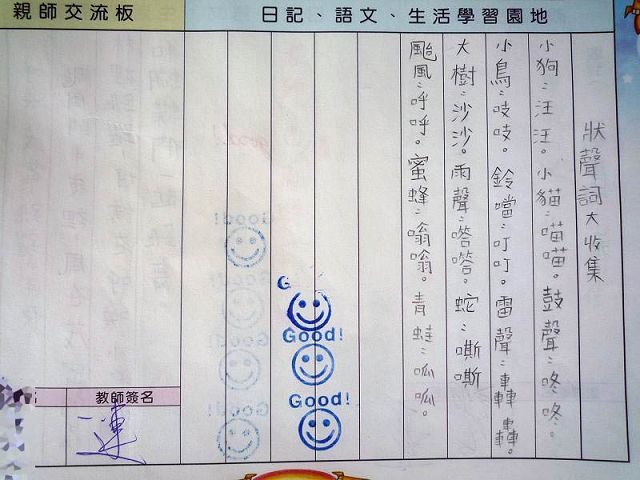 親師交流板
日記、語文、生活學習園地
狀聲詞大收集
小狗:汪汪。小貓:喵喵。鼓聲:咚咚。
小鳥:吱吱。鈴噹:叮叮。雷聲:轟轟。
大樹:沙沙。雨聲:嗒嗒。蛇:嘶嘶
颱風:呼呼。蜜蜂:嗡嗡。青蛙:呱呱。
Good!
Good!
Good!
教師簽名